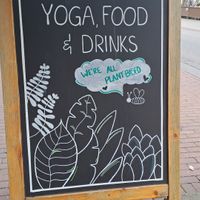 YOGA, FOOD
& DRINKS
WE'RE ALL
PLANTBASED